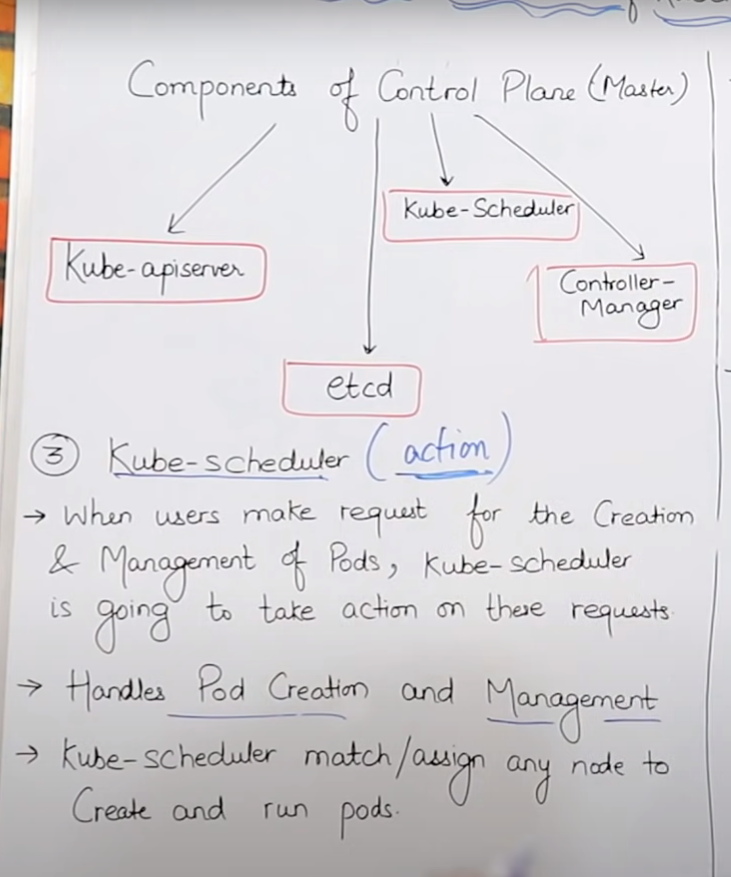 Components of Control Plane (Master)
Kube-Scheduler
Kube-apiserver
Controller-
Manager
etcd
③ Kube-scheduler (action)
→ When users make request for the Creation
& Management of Pods, Kube-scheduler
is going to take action on these requests.
→ Handles Pod Creation and Management
→ Kube-scheduler match/assign any node to
Create and run pods.